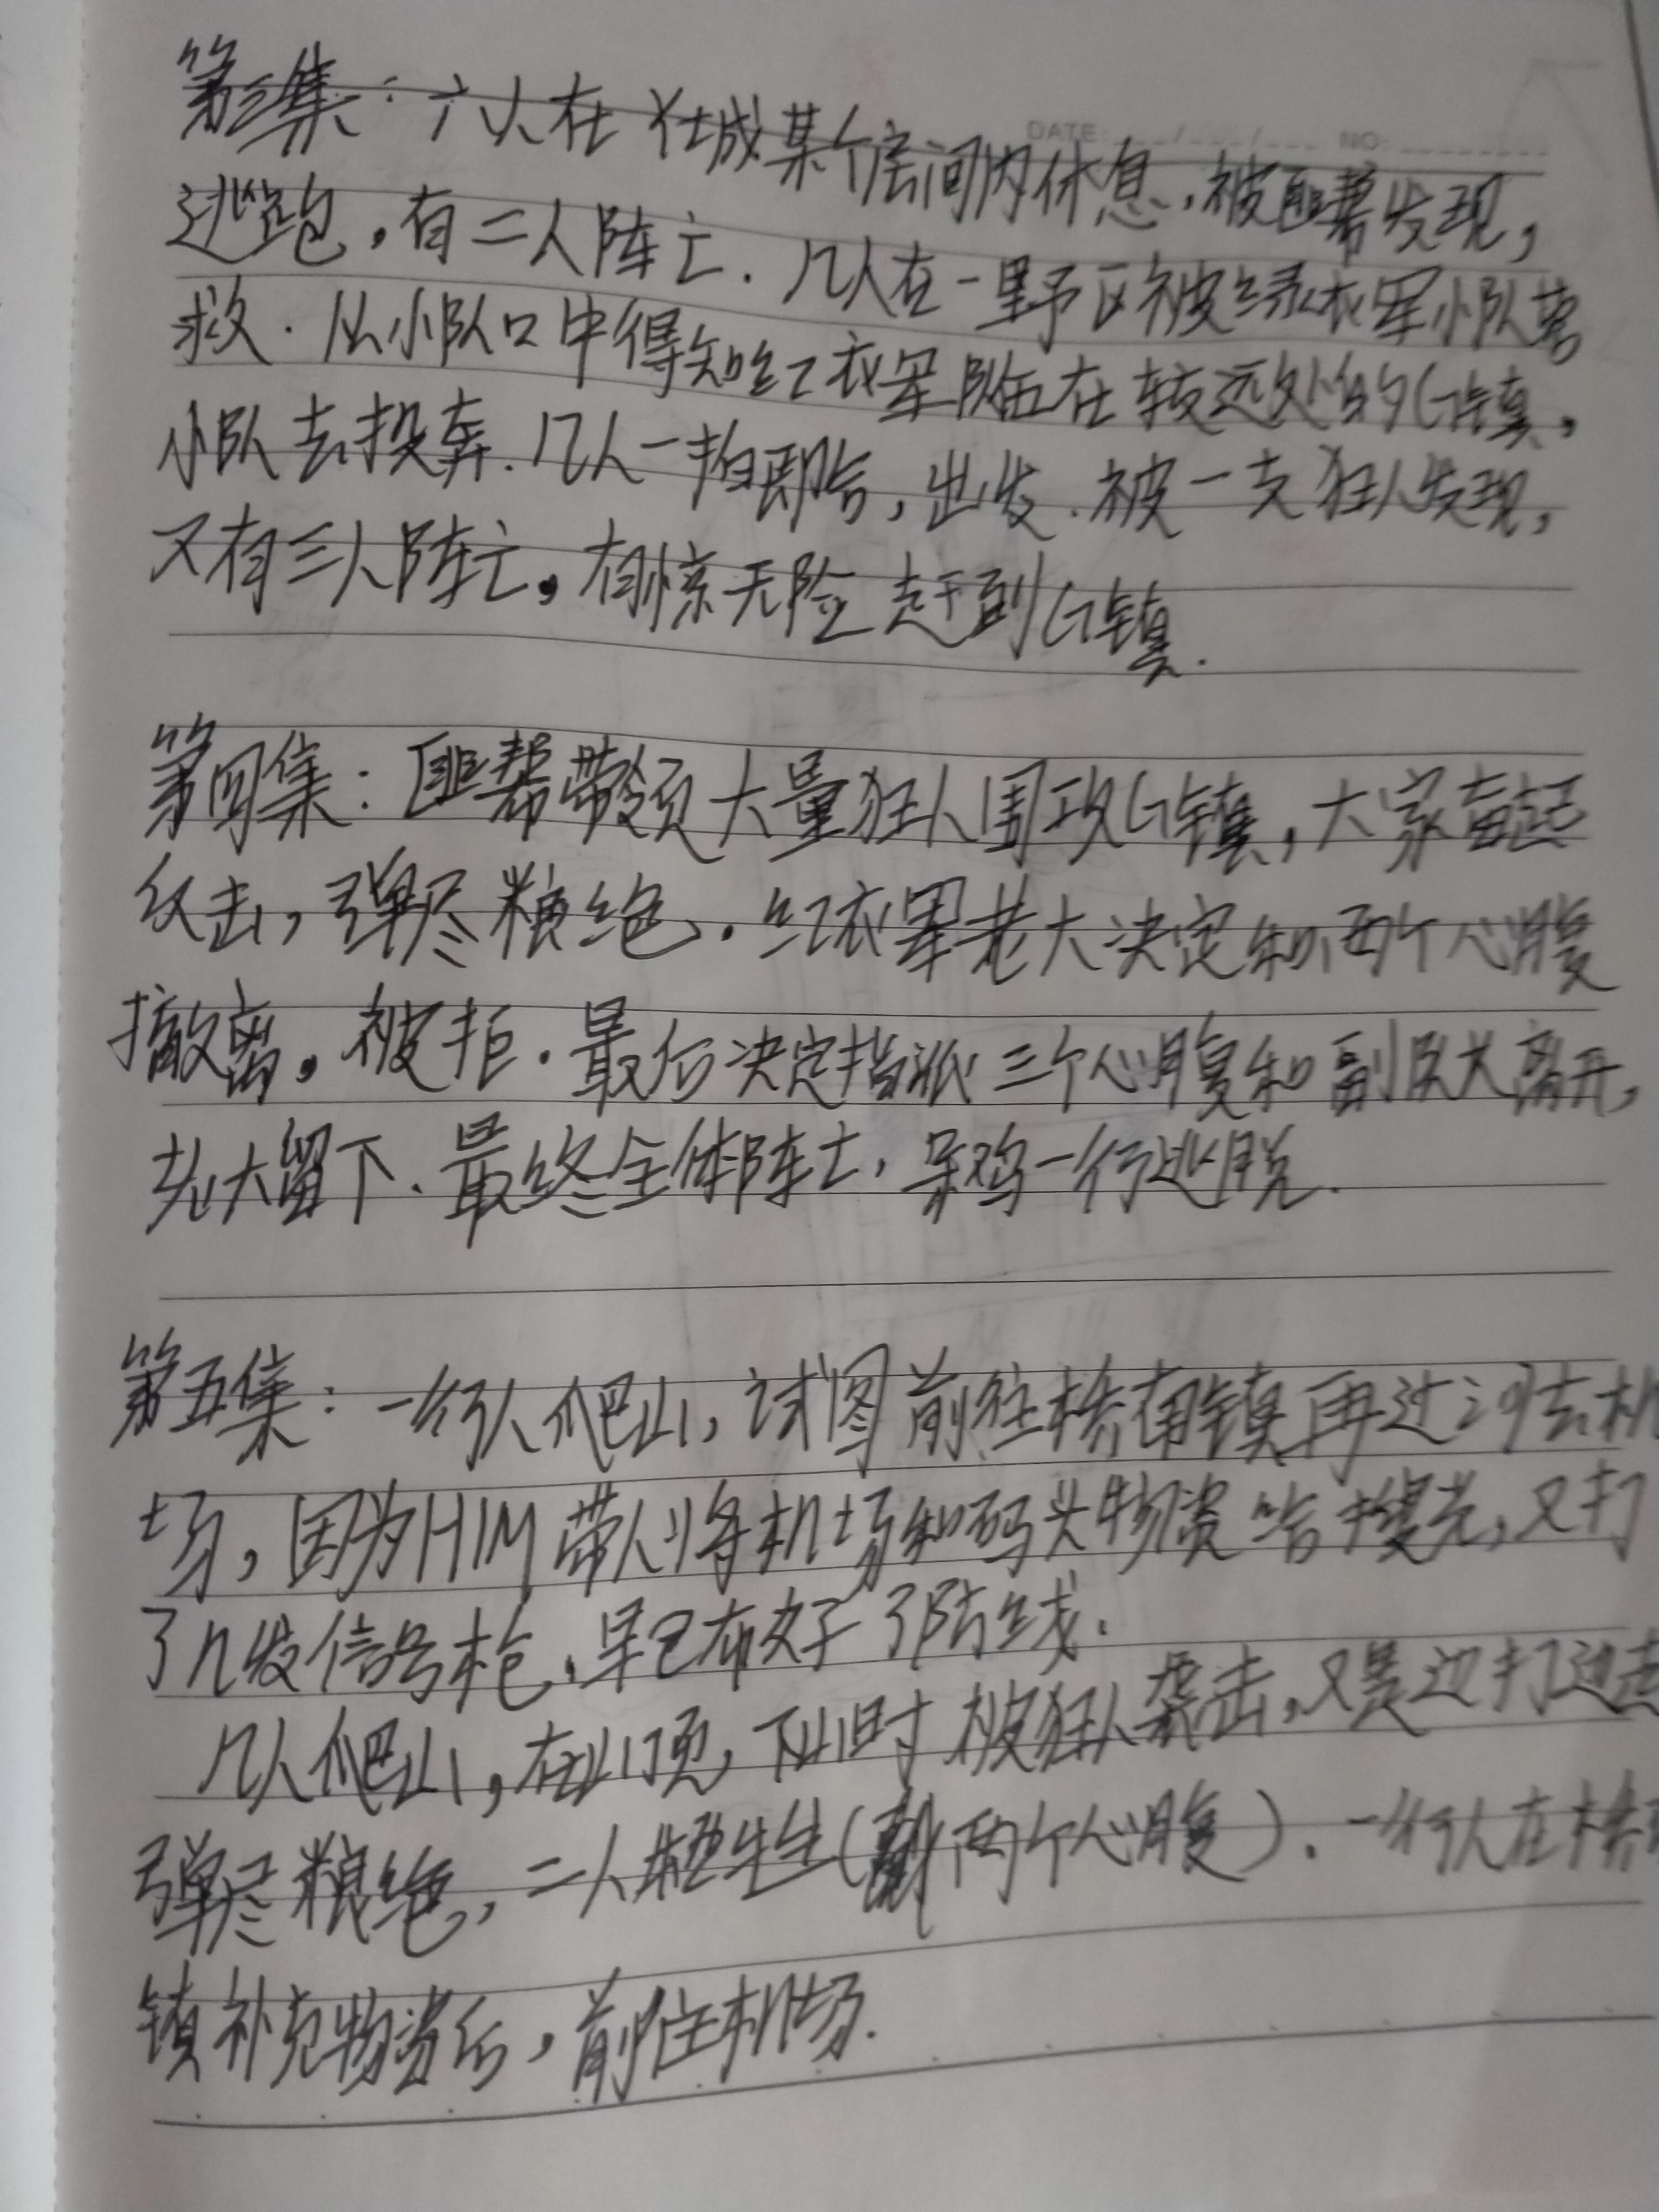 DATE: NO:
第三集：六人在Y城某个房间内休息，被匪帮发现，
逃跑，有二人阵亡．几人在一野区被绿衣军小队
救．从小队口中得知红衣军队伍在较远处的G镇，
小队去投奔．几人一拍即合，出发．被一支狂人发现，
又有三人阵亡，有惊无险赶到G镇．
第四集：匪帮带领大量狂人围攻G镇，大家奋起
反击，弹尽粮绝．红衣军老大决定和两个心腹
撤离，被拒．最后决定指派三个心腹和副队长离开，
老大留下．最终全体阵亡，呆鸡一行逃脱．
第五集：一行人爬山，试图前往桥南镇再过河去机
场，因为HIM带人将机场和码头物资皆搜光，又打
了几发信号枪，早已布好了防线．
几人爬山，在山顶，下山时被狂人袭击，又是边打边走
弹尽粮绝，二人牺牲（两个心腹）．一行人在桥
镇补充物资后，前往机场．